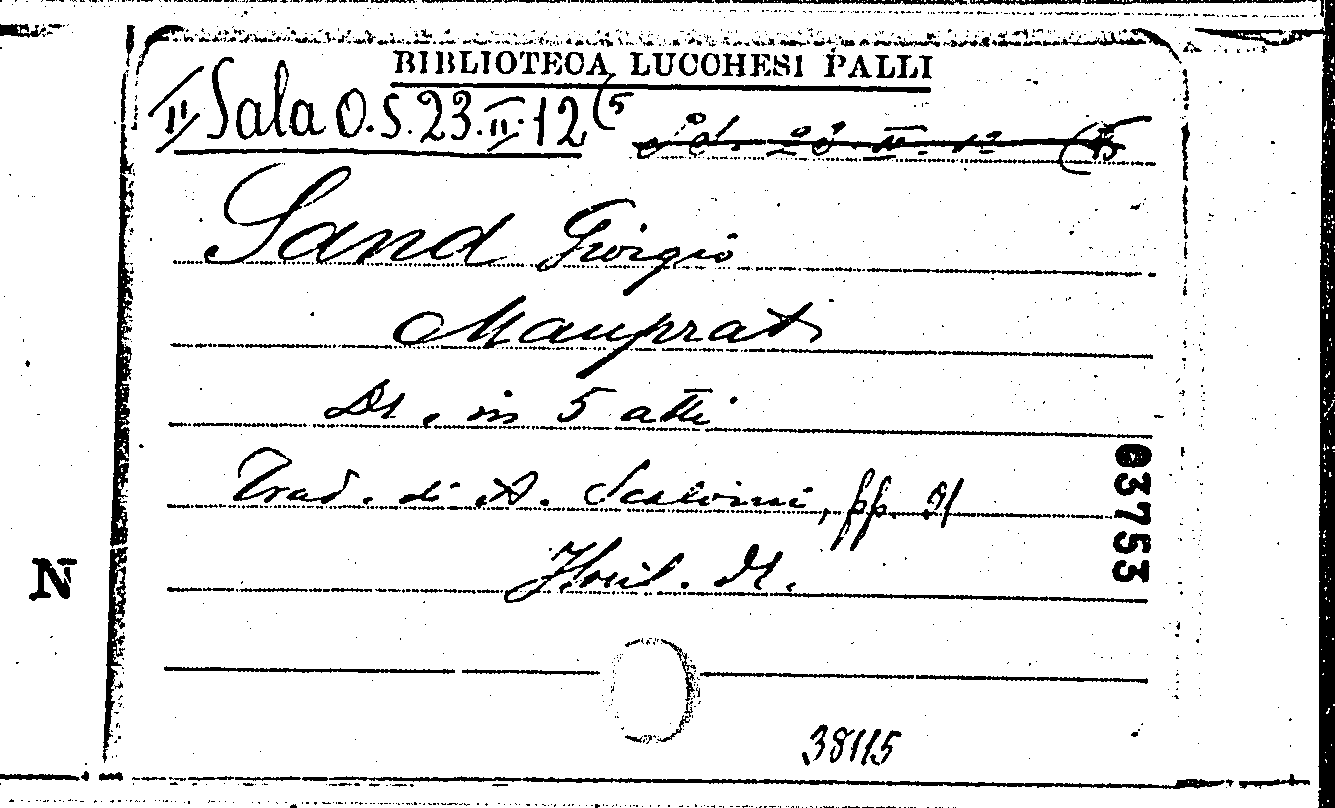 BIBLIOTECA LUCCHESI PALLI
II Sala O.S. 23. II. 12 (5
Sand Giorgio
Mauprat
Dr. in 5 atti
Trad. di A. Scalvini, pp. 91
03753
N
38115